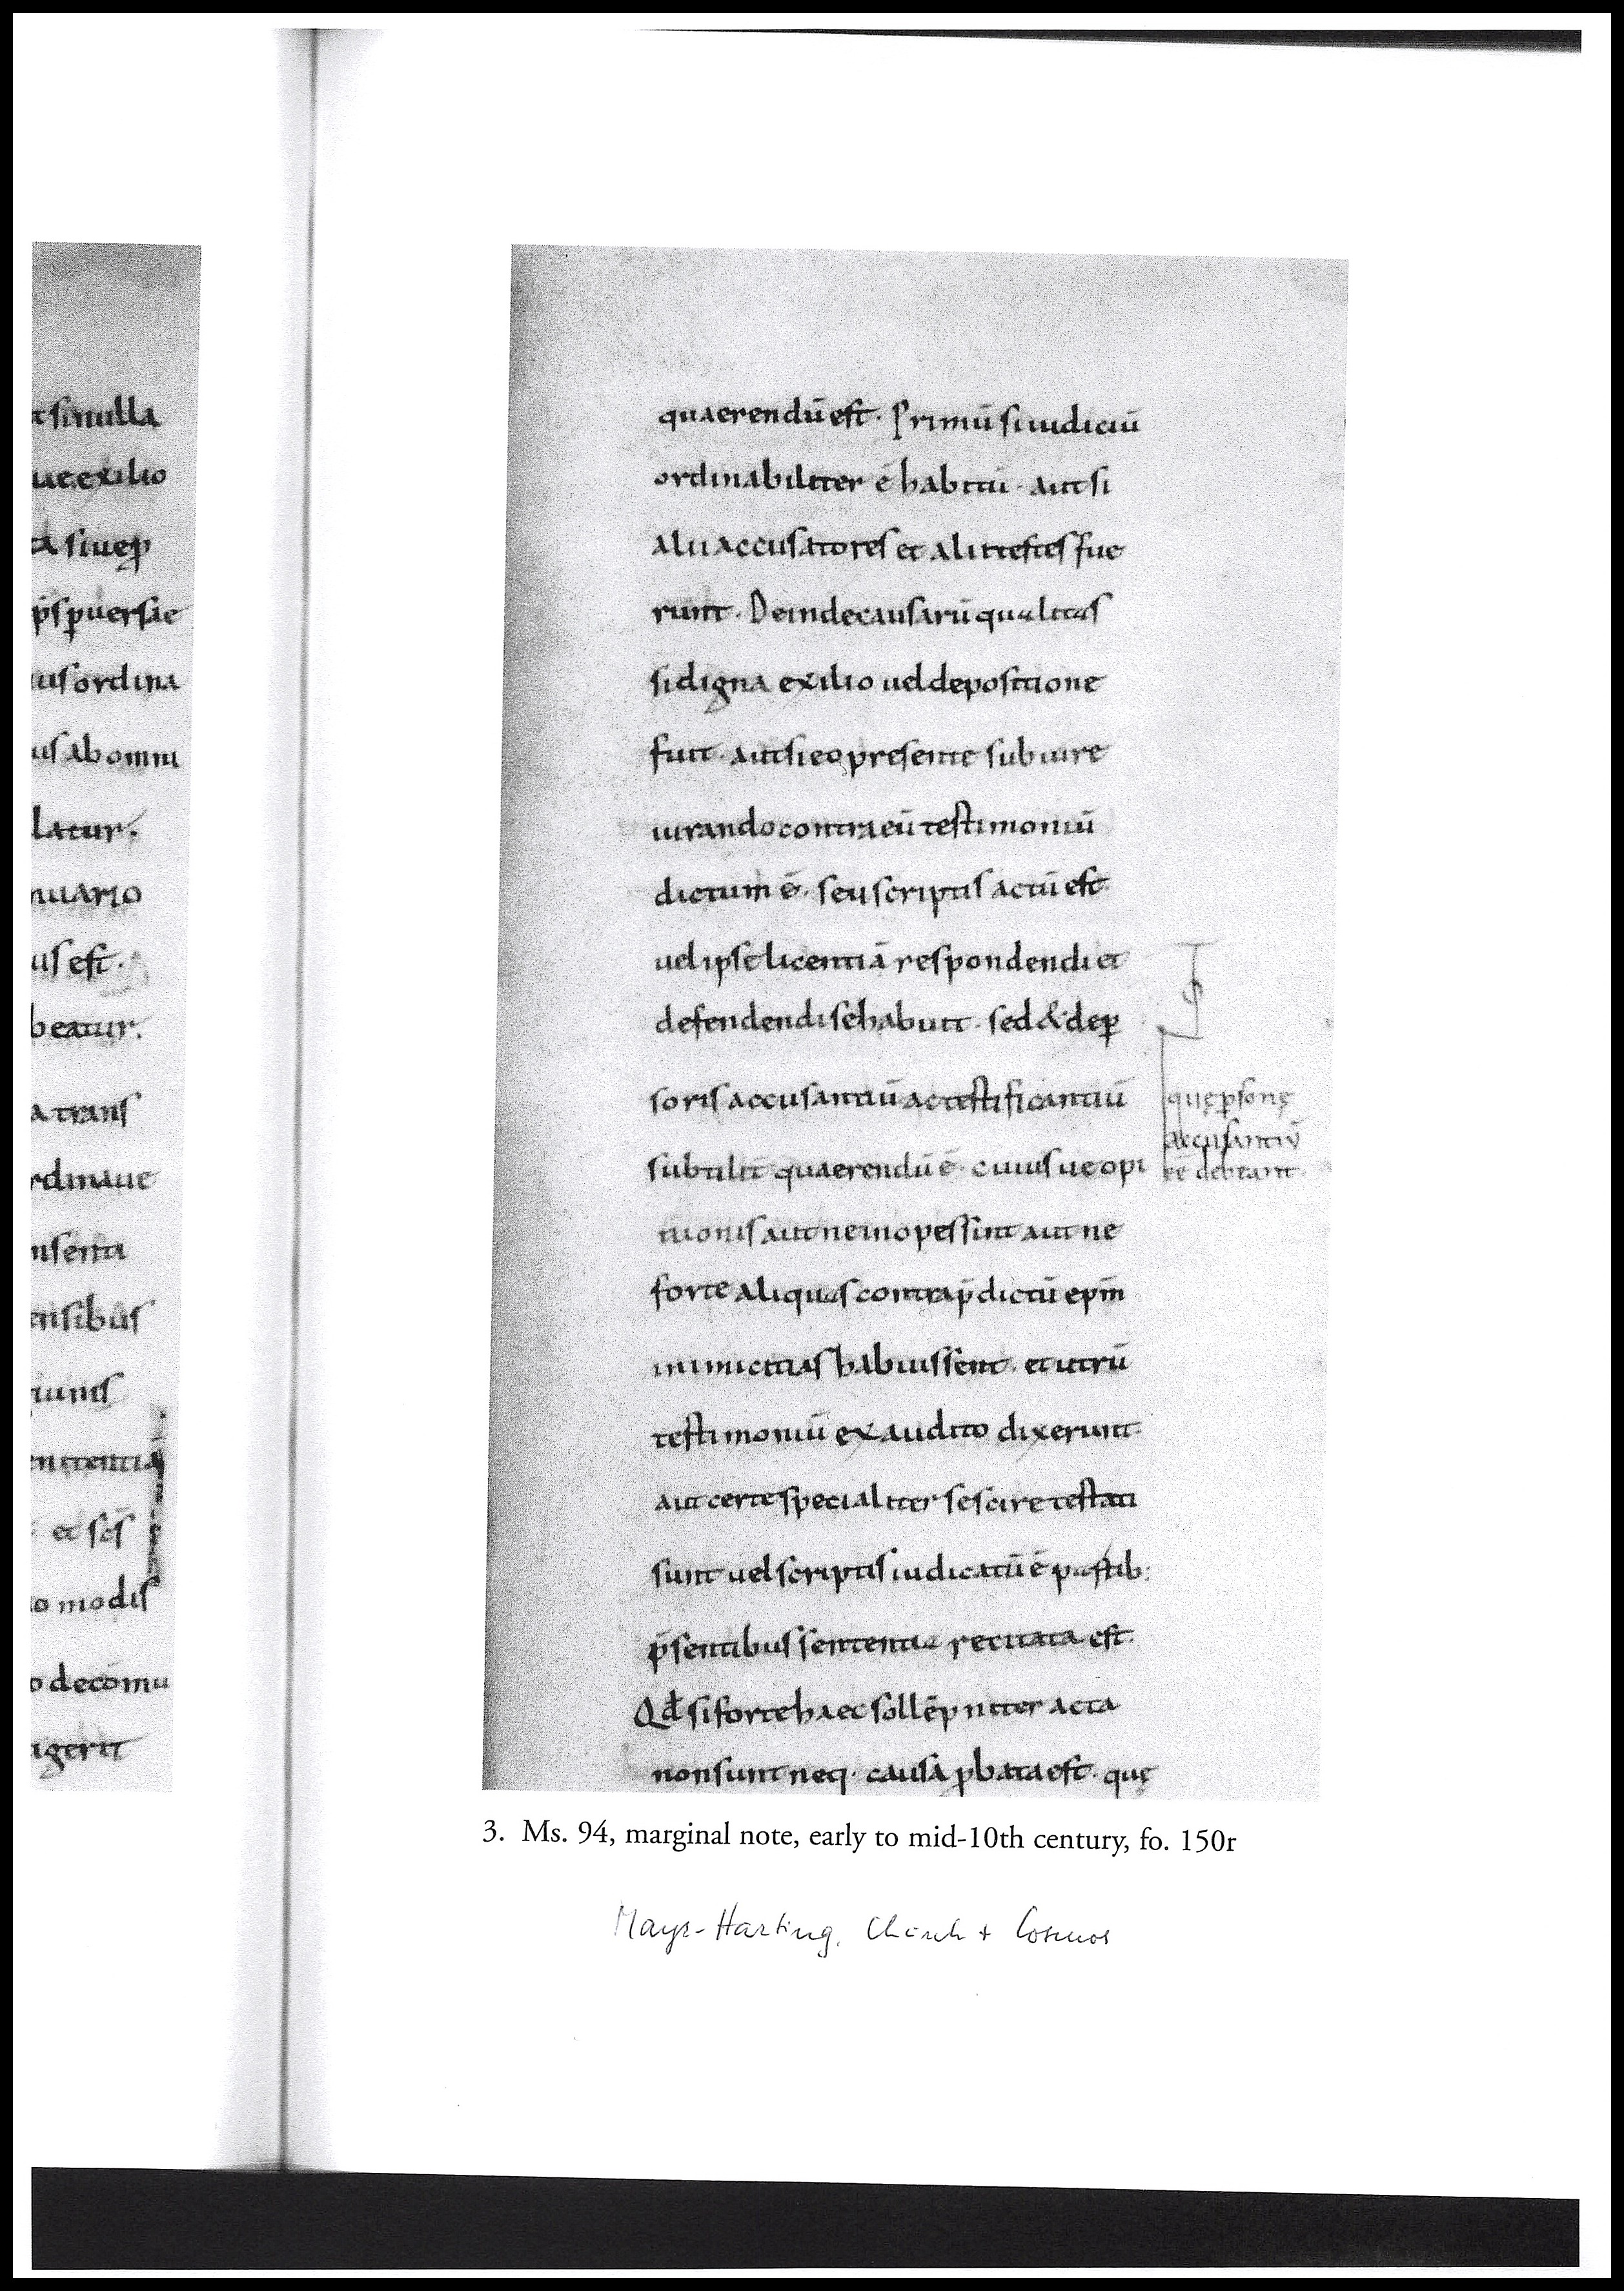 t si nulla
ue exilio
a siue ꝑ
p̄s ꝑuersae
us ordina
us ab omni
latur.
nuario
us est.
beatur.
a trans
rdinaue
nsenti
ensibus
riunis
enitentia
et scs̄
o modis
o decōmu
agerit
quaerendū est. Primū si iudiciū
ordinabiliter ē habitū. aut si
alii accusatores et alii testes fue
runt. Deinde causarū qualitas
si digna exilio uel depositione
fuit. aut si eo presente sub iure
iurando contra eū testimoniū
dictum ē. seu scriptis actū est
uel ipse licentiā respondendi et
defendendi se habuit. sed & de ꝑ
sonis accusantiū ac testificantiū
subtilit̄ quaerendū ē. cuiusue opi
nionis aut ne inopes sint aut ne
forte aliquas contra p̄dictū ep̄m
inimicitias habuissent. et utrū
testimoniū ex audito dixerunt.
aut certe specialiter se scire testati
sunt uel scriptis iudicatū ē partib:
p̄sentibus sententia recitata est.
Qd̄ si forte haec sollēpniter acta
non sunt neq. causa ꝓbata est. quę
quę ꝑsonę
accusantiū
eē debeant.
3. Ms. 94, marginal note, early to mid-10th century, fo. 150r
Mayr-Harting, Church + Cosmos